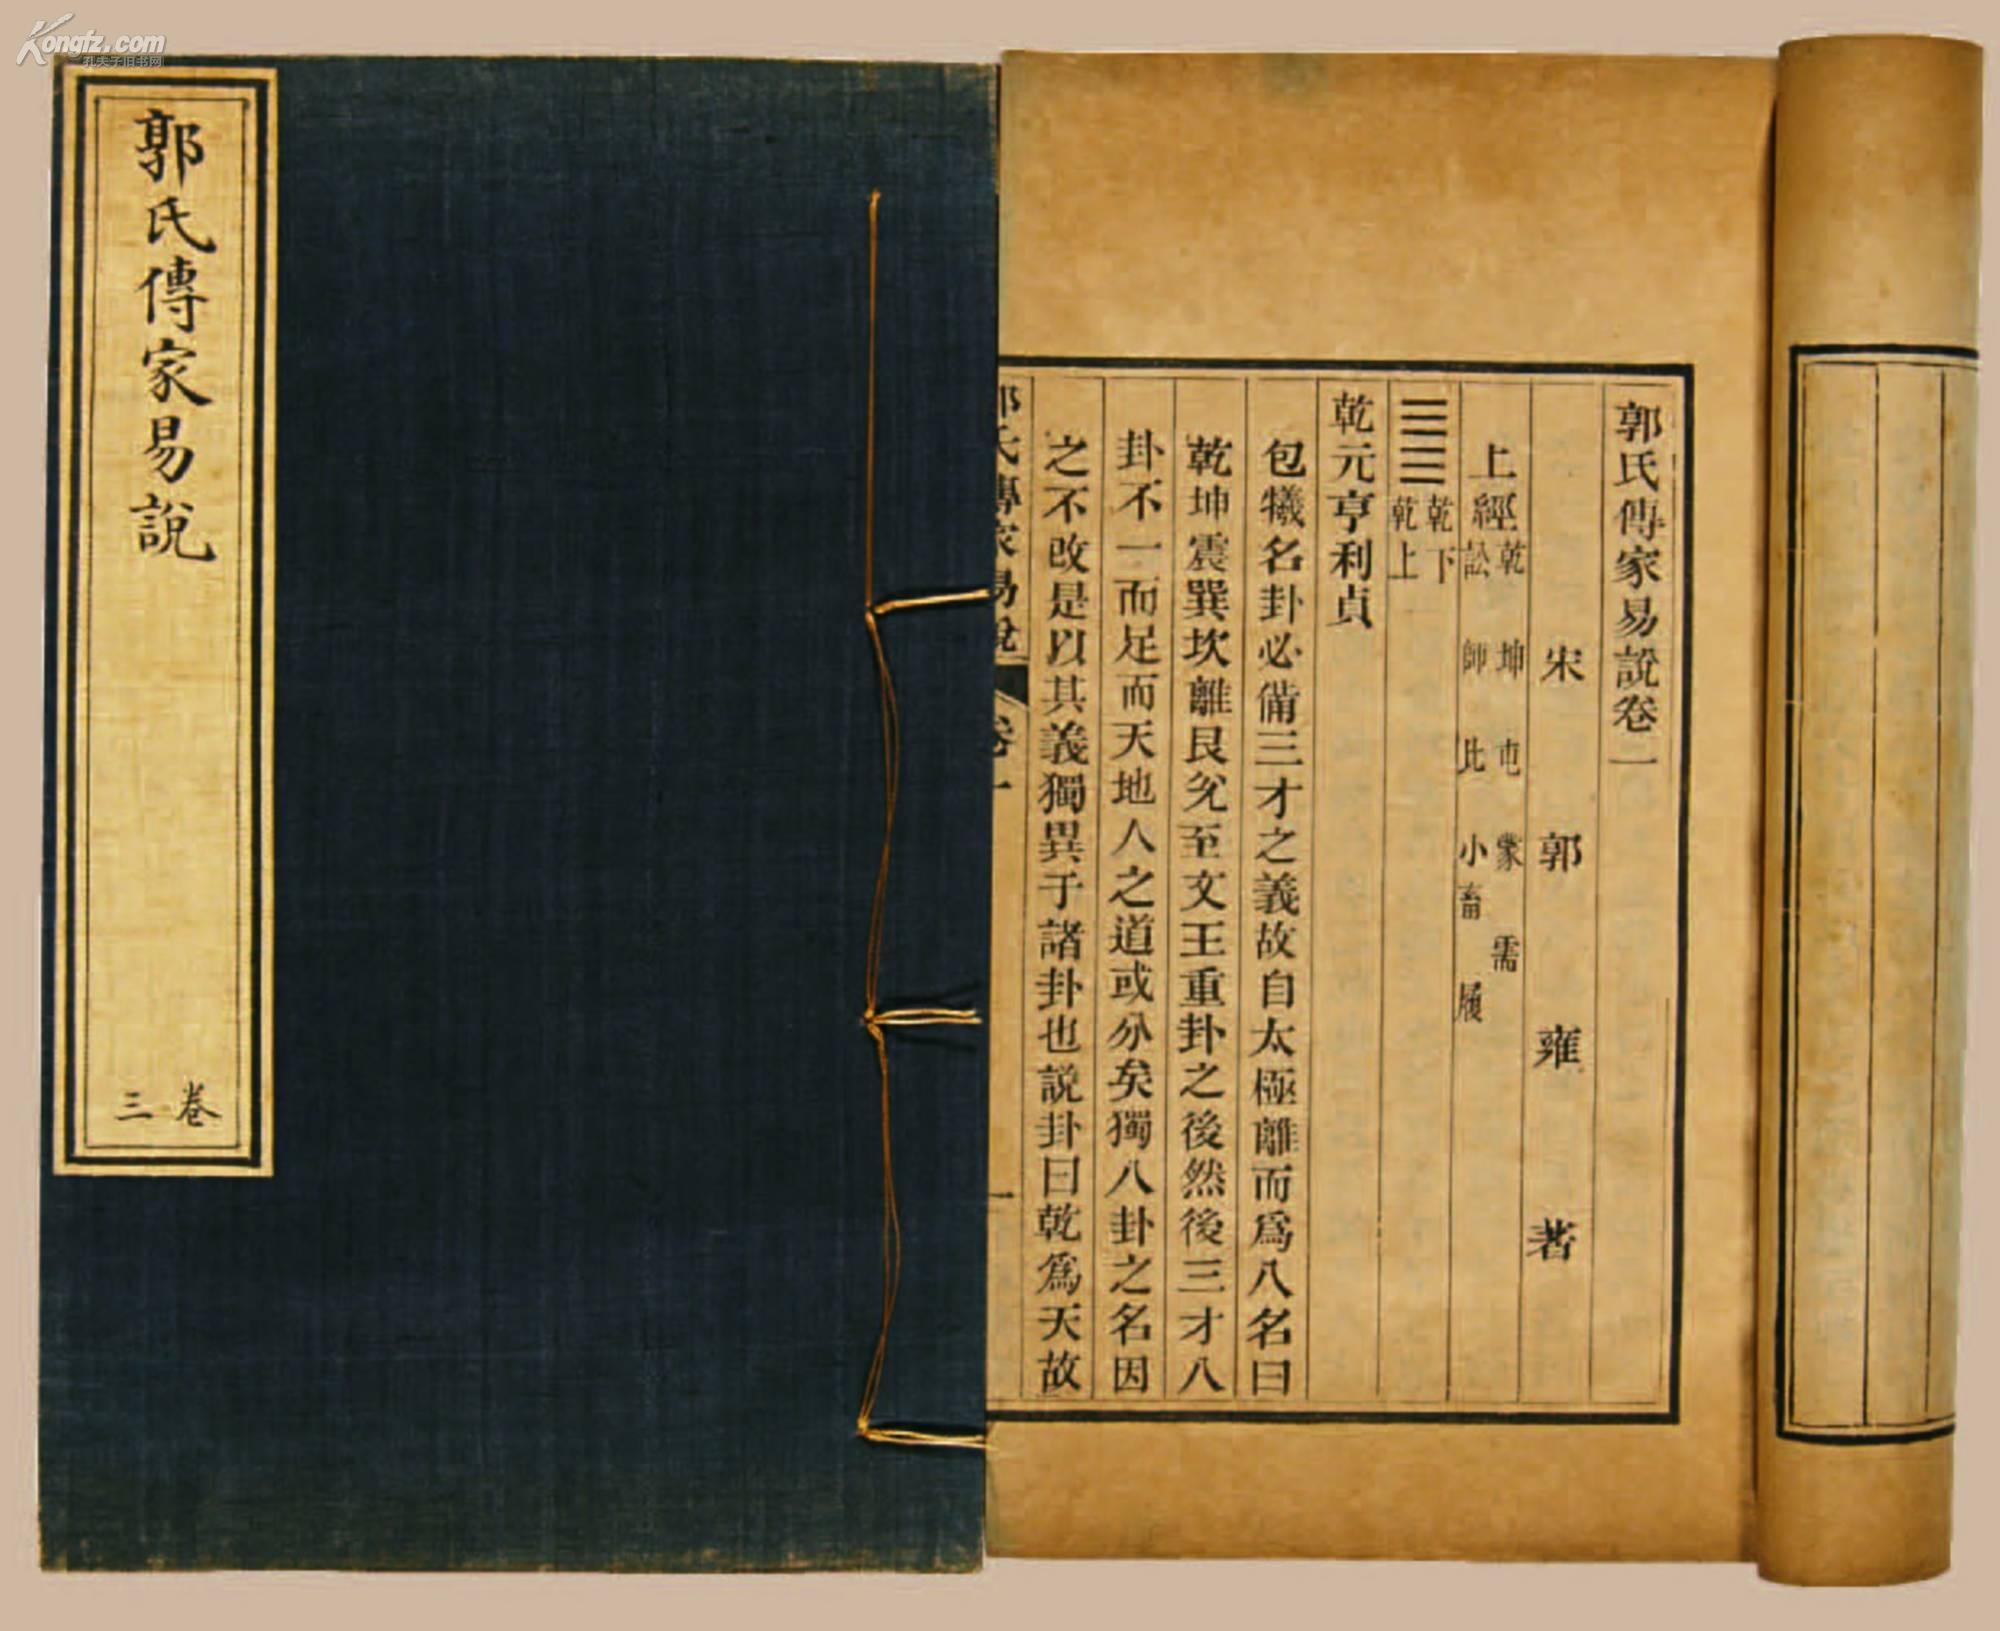 Kongfz.com
孔夫子旧书网
郭氏傳家易說
卷三
郭氏傳家易說卷一
宋郭雍著
上經乾坤屯蒙需
訟師比小畜履
乾下
乾上
乾元亨利貞
包犧名卦必備三才之義故自太極離而為八名曰
乾坤震巽坎離艮兊至文王重卦之後然後三才八
卦不一而足而天地人之道或分矣獨八卦之名因
之不改是以其義獨異于諸卦也說卦曰乾為天故
郭氏傳家易說
卷一
一